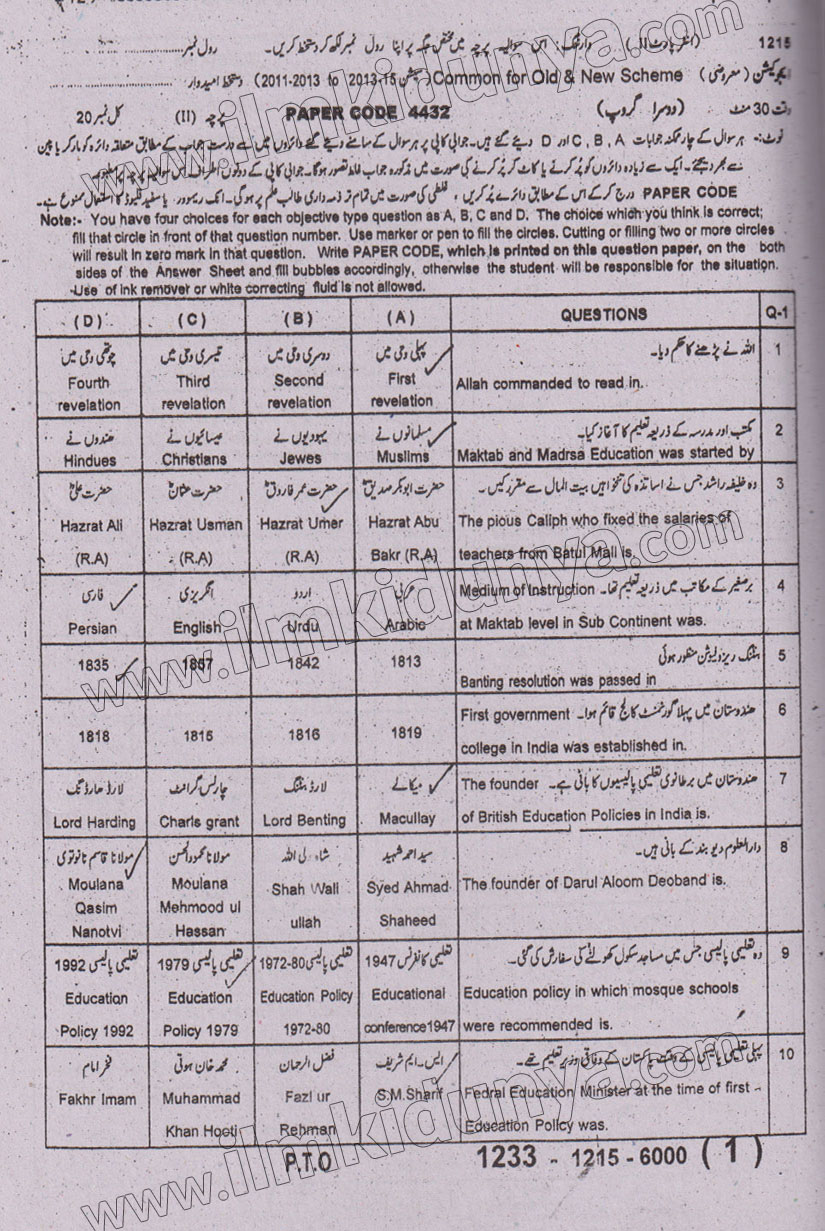 1215 (انٹر پارٹ II) وارننگ: اس سوالیہ پرچہ میں مختص جگہ پر اپنا رول نمبر لکھ کر دستخط کریں۔ رول نمبر
ایجوکیشن (معروضی) Common for Old & New Scheme (سیشن 2013-15 to 2011-2013) دستخط امیدوار
وقت 30 منٹ (دوسرا گروپ) PAPER CODE 4432 پرچہ (II) کل نمبر 20
نوٹ:- ہر سوال کے چار ممکنہ جوابات C, B, A اور D دیئے گئے ہیں۔ جوابی کاپی پر ہر سوال کے سامنے دیئے گئے دائروں میں سے درست جواب کے مطابق متعلقہ دائرہ کو مارکر یا پین
سے بھر دیجئے۔ ایک سے زیادہ دائروں کو پُر کرنے یا کاٹ کر پُر کرنے کی صورت میں مذکورہ جواب غلط تصور ہوگا۔ جوابی کاپی کے دونوں اطراف اس سوالیہ پرچہ پر مطبوعہ
PAPER CODE درج کر کے اس کے مطابق دائرے پُر کریں، غلطی کی صورت میں تمام تر ذمہ داری طالب علم پر ہوگی۔ انک ریموور یا سفید فلیوڈ کا استعمال ممنوع ہے۔
Note:- You have four choices for each objective type question as A, B, C and D. The choice which you think is correct;
fill that circle in front of that question number. Use marker or pen to fill the circles. Cutting or filling two or more circles
will result in zero mark in that question. Write PAPER CODE, which is printed on this question paper, on the both
sides of the Answer Sheet and fill bubbles accordingly, otherwise the student will be responsible for the situation.
Use of ink remover or white correcting fluid is not allowed.
(D) (C) (B) (A) QUESTIONS Q-1
چوتھی وحی میں تیسری وحی میں دوسری وحی میں پہلی وحی میں اللہ نے پڑھنے کا حکم دیا۔ 1
Fourth Third Second First Allah commanded to read in.
revelation revelation revelation revelation
ھندوں نے عیسائیوں نے یہودیوں نے مسلمانوں نے مکتب اور مدرسہ کے ذریعہ تعلیم کا آغاز کیا۔ 2
Hindues Christians Jewes Muslims Maktab and Madrsa Education was started by
حضرت علیؓ حضرت عثمانؓ حضرت عمر فاروقؓ حضرت ابوبکر صدیقؓ وہ خلیفہ راشد جس نے اساتذہ کی تنخواہیں بیت المال سے مقرر کیں۔ 3
Hazrat Ali Hazrat Usman Hazrat Umer Hazrat Abu The pious Caliph who fixed the salaries of
(R.A) (R.A) (R.A) Bakr (R.A) teachers from Batul Mall is.
فارسی انگریزی اردو عربی برصغیر کے مکاتب میں ذریعہ تعلیم تھا۔ Medium of Instruction 4
Persian English Urdu Arabic at Maktab level in Sub Continent was.
1835 1857 1842 1813 بنٹنگ ریزولیوشن منظور ہوئی 5
Banting resolution was passed in
1818 1815 1816 1819 ھندوستان میں پہلا گورنمنٹ کالج قائم ہوا۔ First government 6
college in India was established in.
لارڈ ھارڈنگ چارلس گرانٹ لارڈ بنٹنگ میکالے ھندوستان میں برطانوی تعلیمی پالیسیوں کا بانی ہے۔ The founder 7
Lord Harding Charls grant Lord Benting Macullay of British Education Policies in India is.
مولانا قاسم نانوتوی مولانا محمود الحسن شاہ ولی اللہ سید احمد شہید دارالعلوم دیوبند کے بانی ہیں۔ 8
Moulana Moulana Shah Wali Syed Ahmad The founder of Darul Aloom Deoband is.
Qasim Mehmood ul ullah Shaheed
Nanotvi Hassan
تعلیمی پالیسی 1992 تعلیمی پالیسی 1979 تعلیمی پالیسی 1972-80 تعلیمی کانفرنس 1947 وہ تعلیمی پالیسی جس میں مساجد سکول کھولنے کی سفارش کی گئی۔ 9
Education Education Education Policy Educational Education policy in which mosque schools
Policy 1992 Policy 1979 1972-80 conference1947 were recommended is.
فخر امام محمد خان ہوتی فضل الرحمان ایس۔ایم شریف پہلی تعلیمی پالیسی کے وقت پاکستان کے وفاقی وزیر تعلیم تھے۔ 10
Fakhr Imam Muhammad Fazl ur S.M.Sharif Fedral Education Minister at the time of first
Khan Hooti Rehman Education Policy was.
P.T.O 1233 - 1215 - 6000 (1)
www.ilmkidunya.com
www.ilmkidunya.com
www.ilmkidunya.com
www.ilmkidunya.com